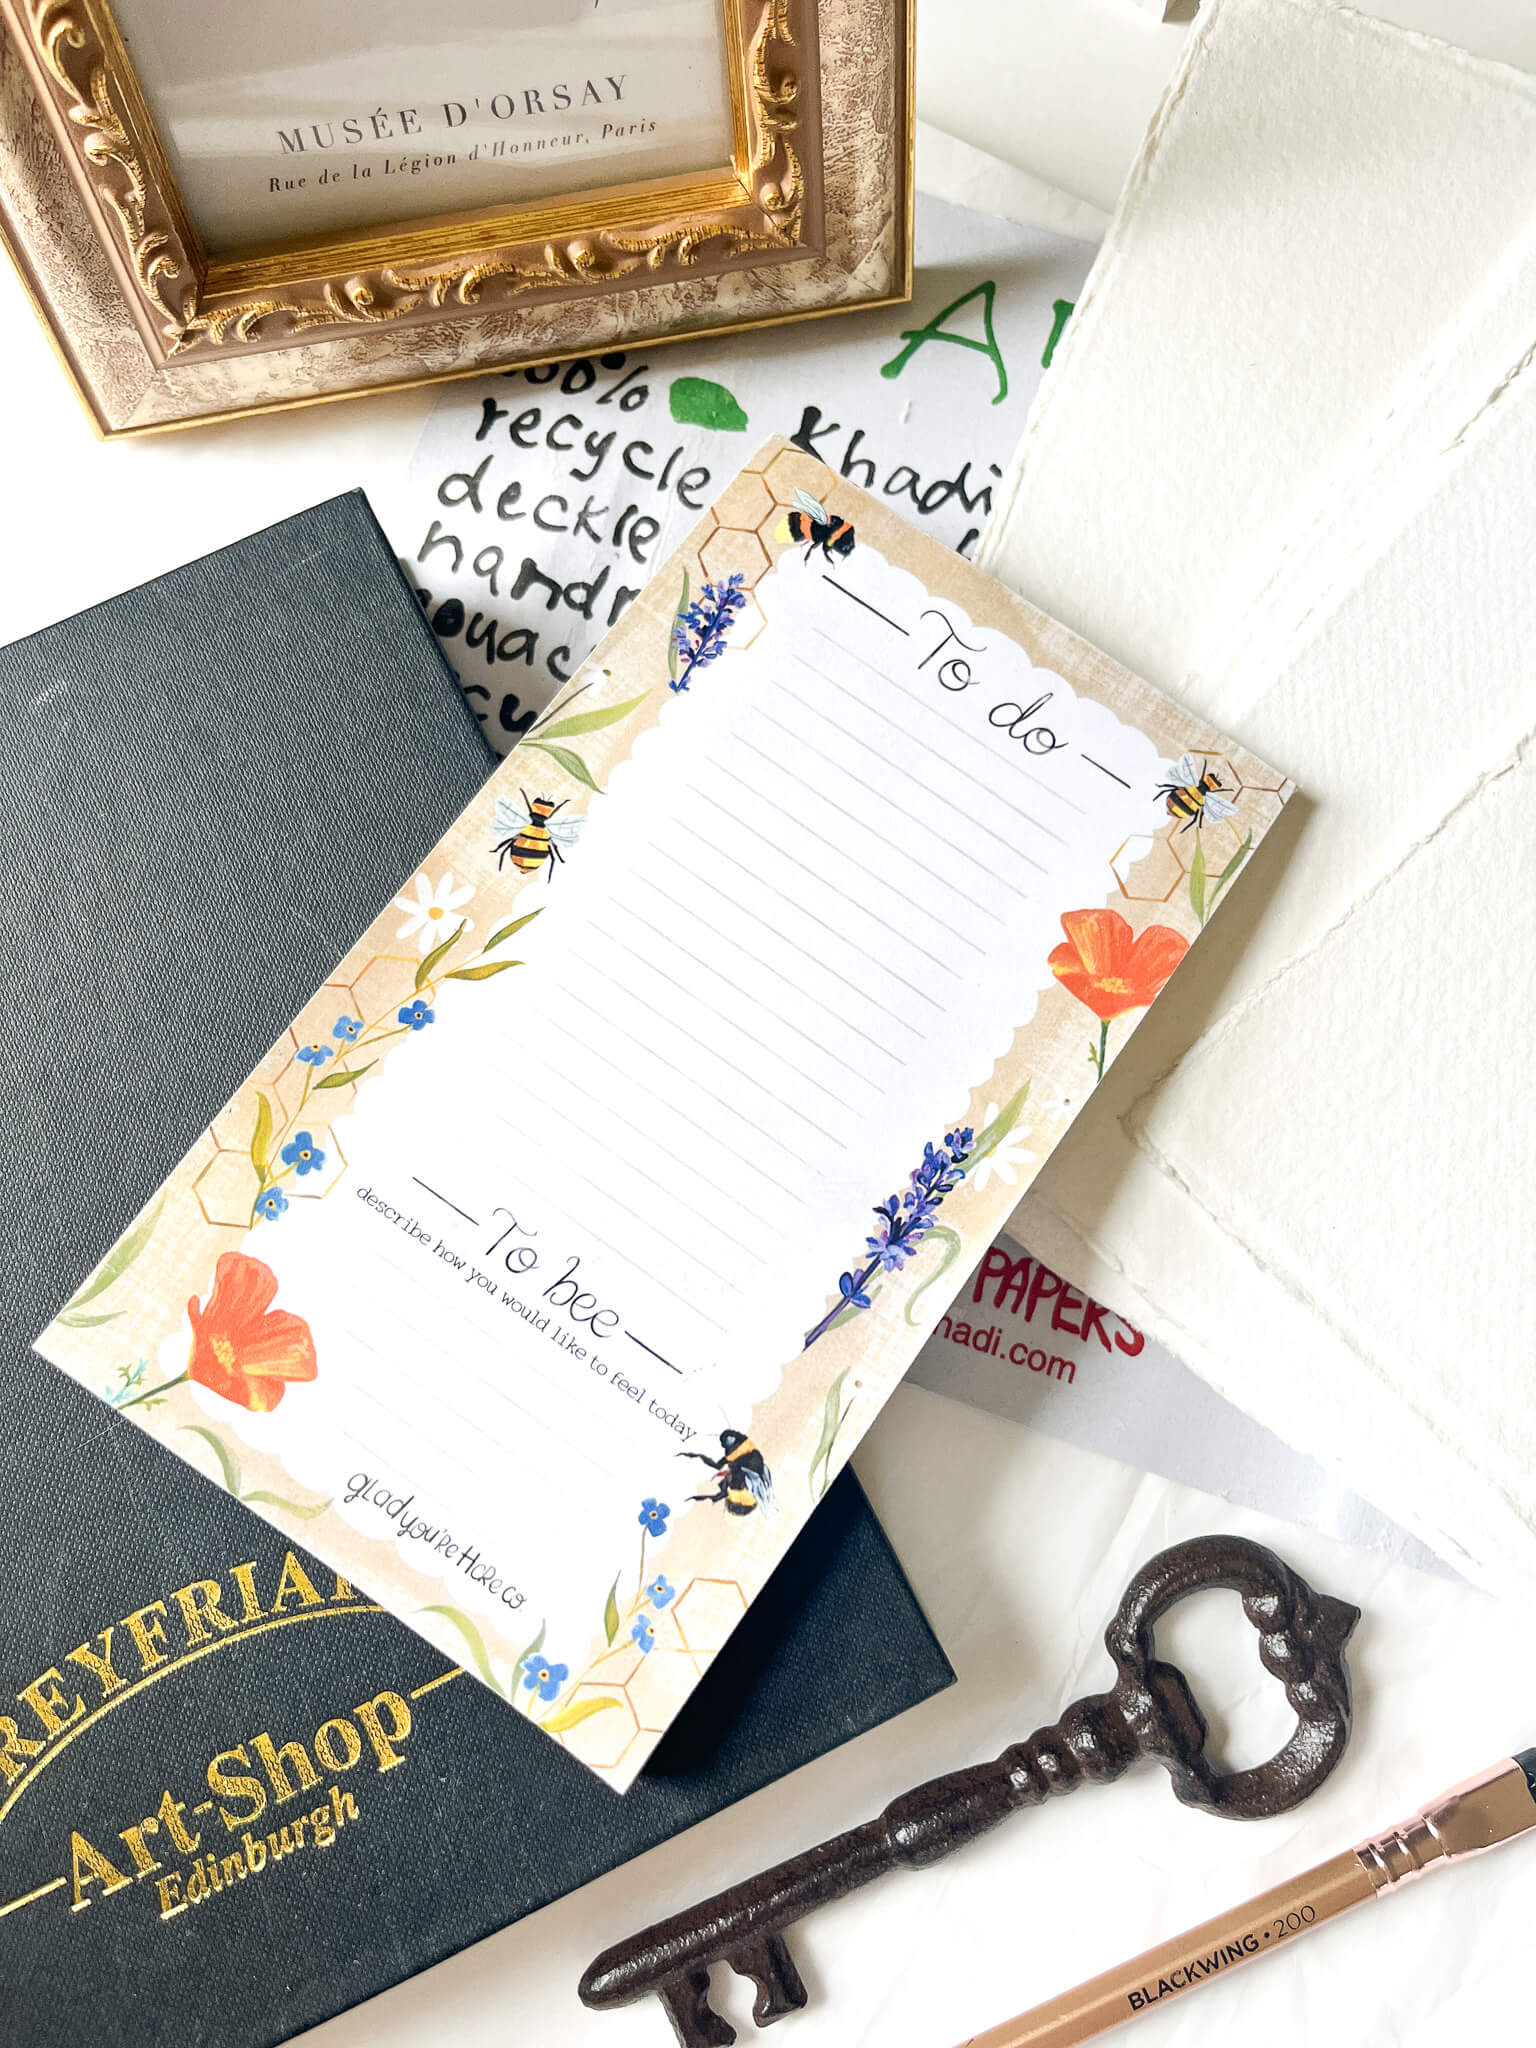 MUSÉE D'ORSAY
Rue de la Légion d'Honneur, Paris
recycle
deckle
Khadi
To do
To bee
describe how you would like to feel today
gladyou'reHereCo.
PAPERS
hadi.com
GREYFRIARS
Art-Shop
Edinburgh
BLACKWING • 200